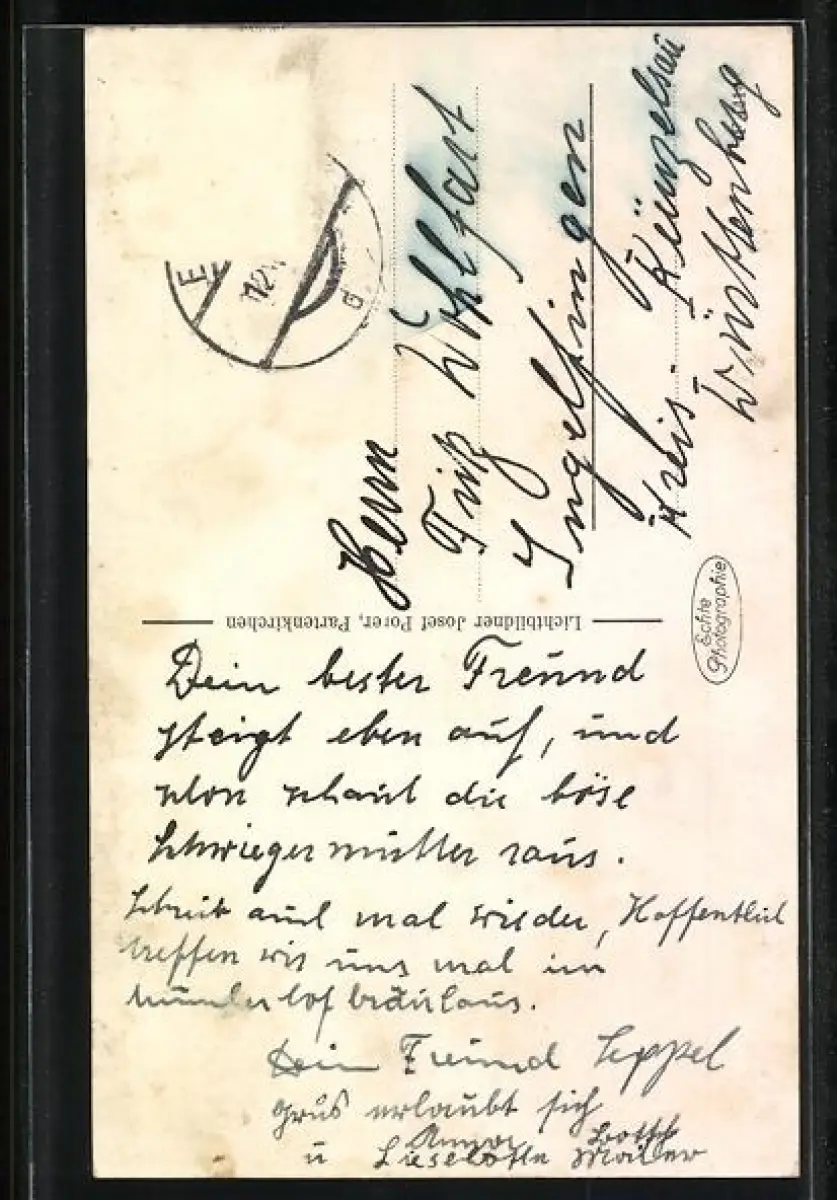 Herrn
Fritz Wohlfart
Ingelfingen
Kreis. Künzelsau
Württenberg
Lichtbildner Josef Porer, Partenkirchen
Echte
Photographie
Dein bester Freund
steigt eben auf, und
schon schaut die böse
Schwiegermutter raus.
Schreib auch mal wieder, Hoffentlich
treffen wir uns mal im
Dein Freund Seppel
Grüs erlaubt sich
u Lieselotte